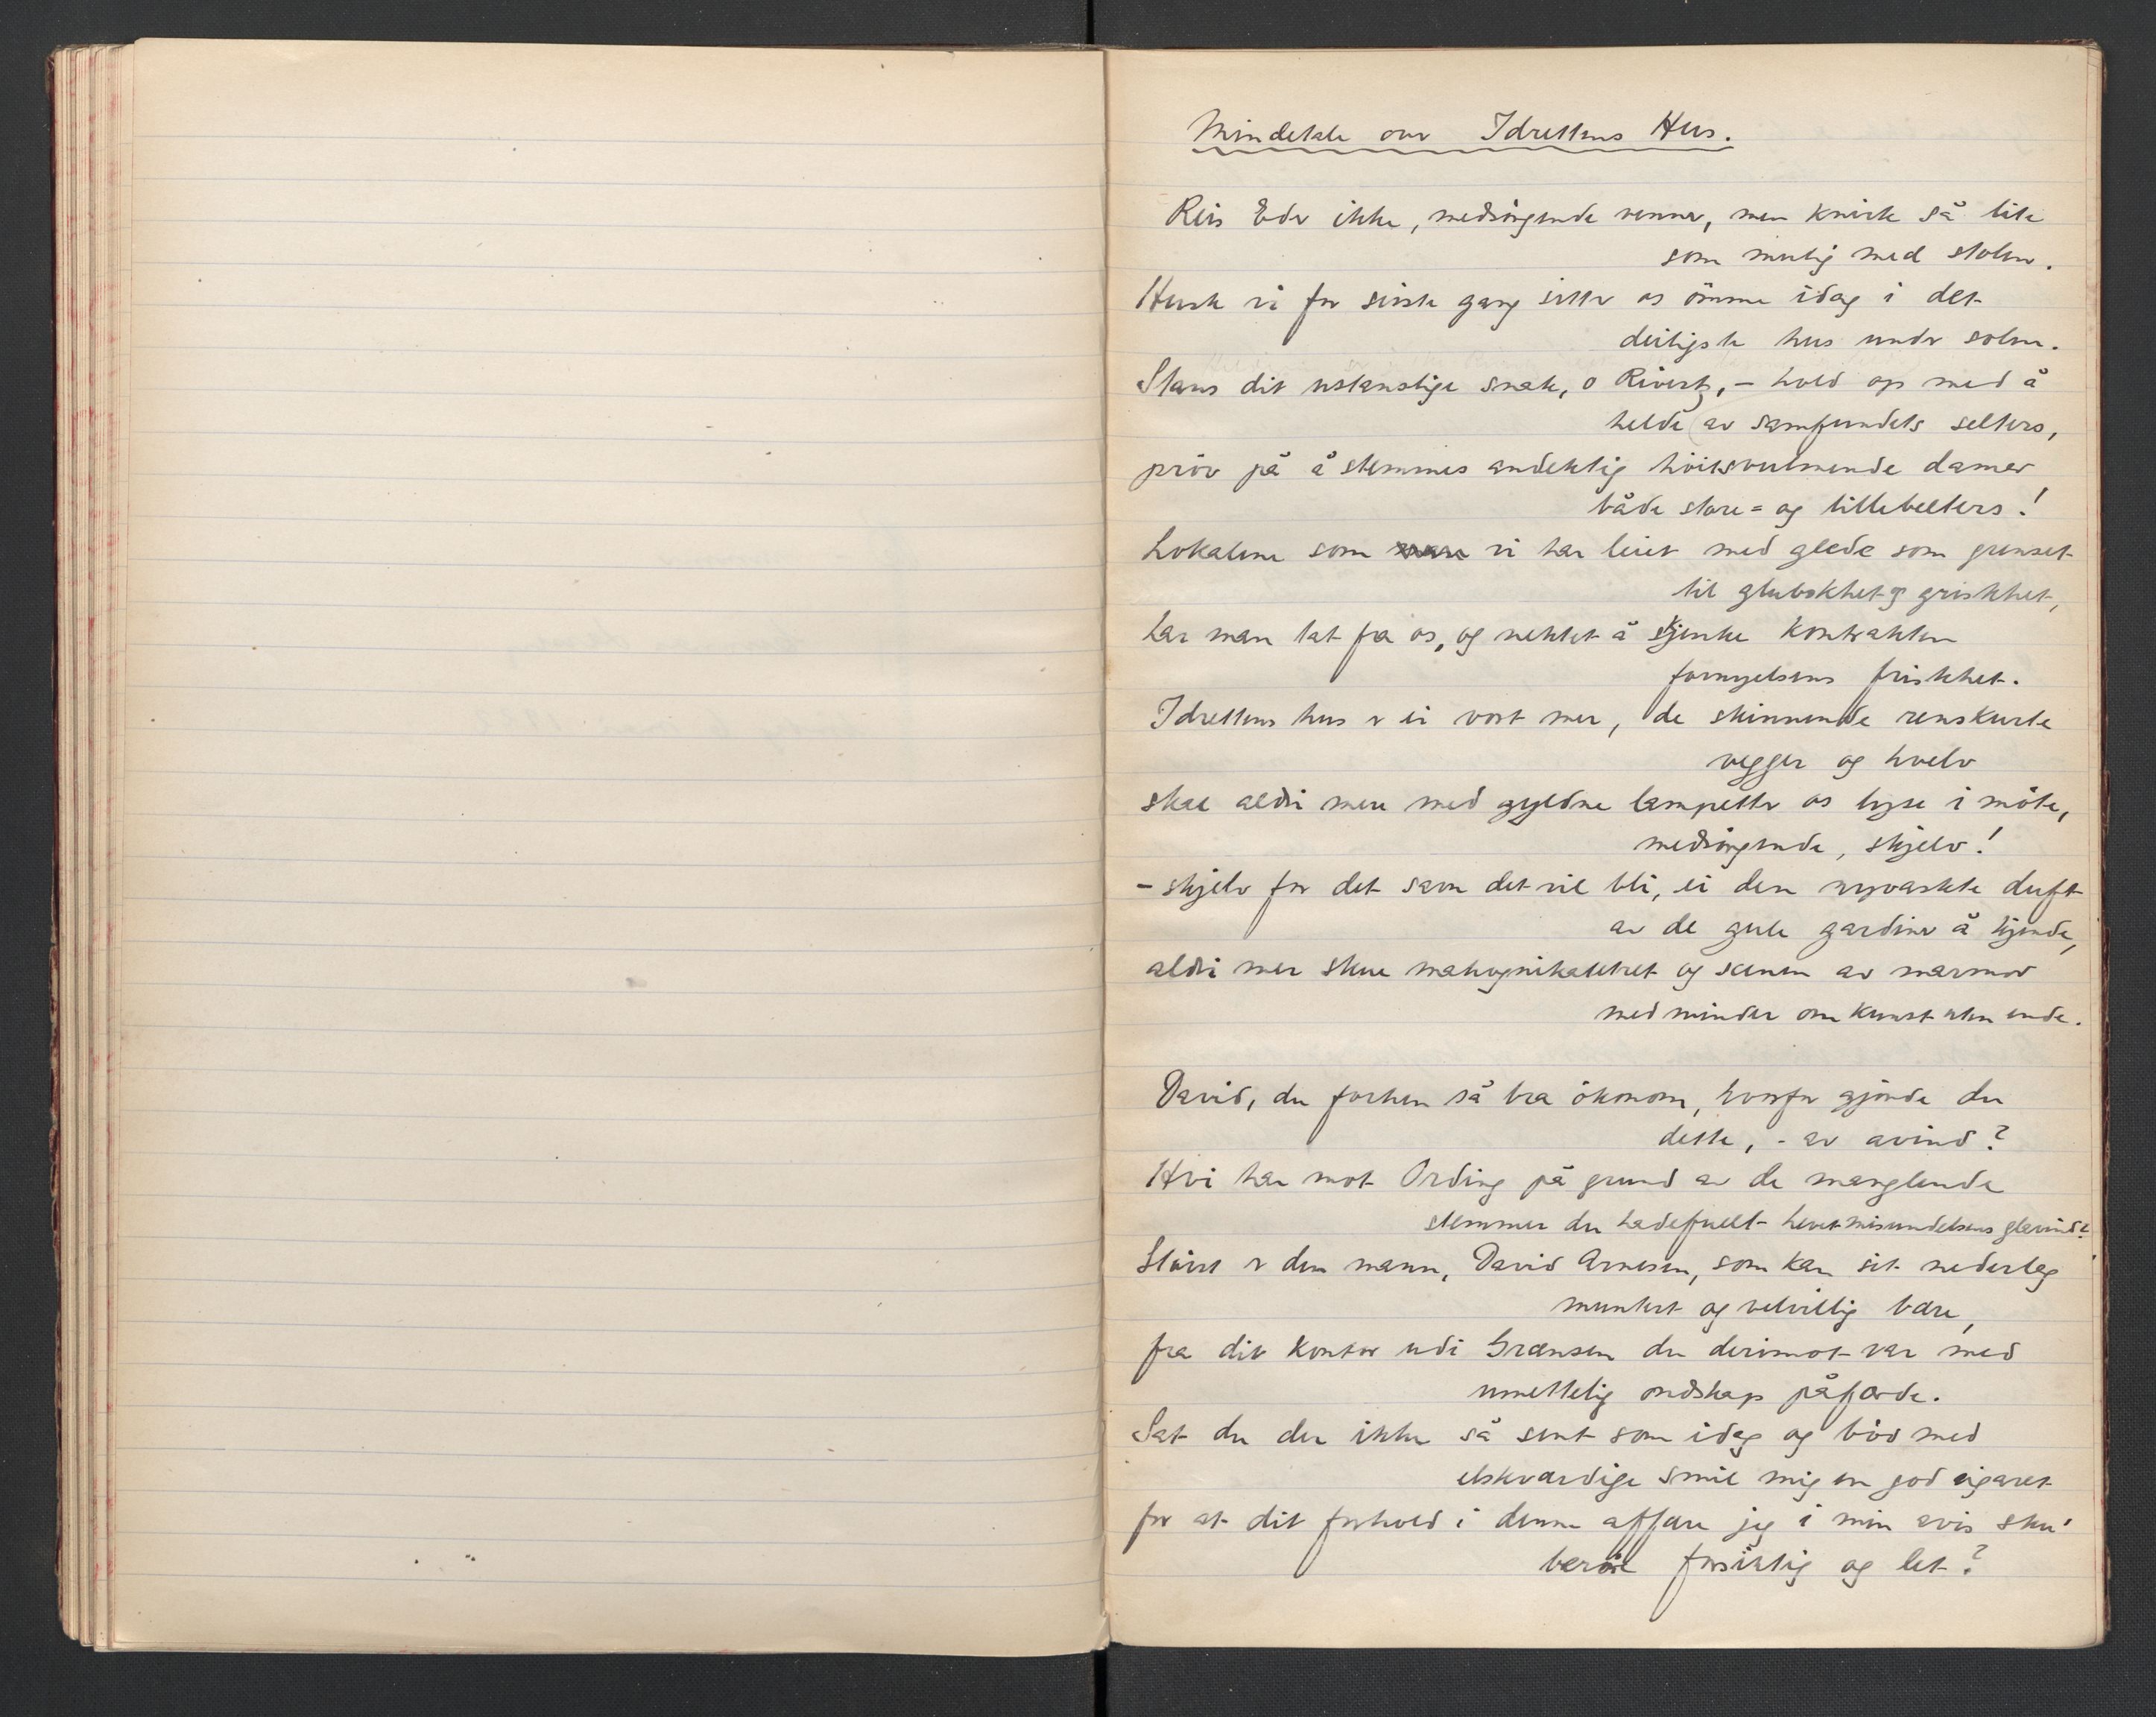 Mindetale over Idrettens Hus.
Reis Eder ikke, medsörgende venner, men knirk så lite
som mulig med stolen.
Husk vi for siste gang sitter os ömme idag i det
deiligste hus under solen.
Stans dit ustanslige snak, o Rivertz, - hold op med å
helde av samfundets selters,
pröv på å stemmes andektig höitsvulmende damer
både store= og lillebelters!
Lokalene som vi har leiet med glede som grenset
til glubskhet og griskhet,
har man tat fra os, og nektet å skjenke kontrakten
fornyelsens friskhet.
Idrettens hus er ei vort mer, de skinnende renskurte
vegger og hvelv
skal aldri mere med gyldne lampetter os lyse i möte,
medsörgende, skjelv!
- skjelv for det som det vil bli, ei den nyvaskte duft
av de gule gardiner å kjende,
aldri mer skue mahognikatetret og scenen av marmor
med minder om kunst uten ende.
David, du forhen så bra ökonom, hvorfor gjorde du
dette, - av avind?
Hvi har mot Ording på grund av de manglende
stemmer du hadefuldt hevet misundelsens glavind?
Störst er den mann, David Arnesen, som kan sit nederlag
muntert og velvillig bære,
fra dit kontor udi Grænsen du derimot var med
umettelig ondskap påfærde.
Sat du der ikke så sent som idag og böd med
elskværdige smil mig en god cigaret
for at dit forhold i denne affære jeg i min avis sku'
beröre forsiktig og let?